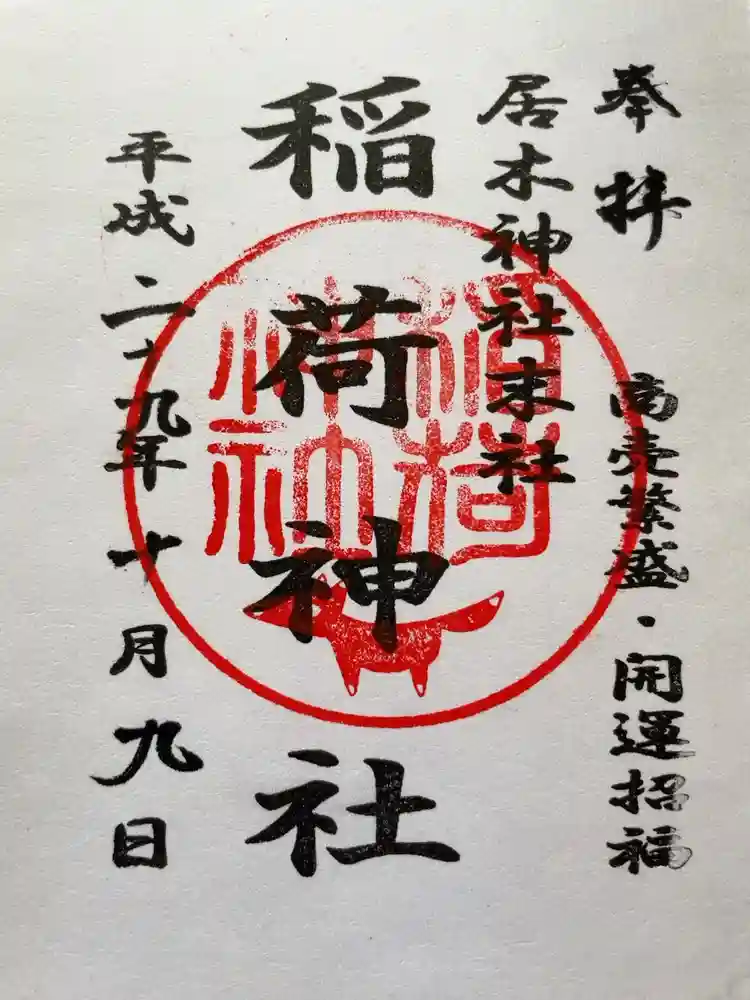 奉拝
商売繁盛・開運招福
居木神社末社
稲荷神社
稲荷神社
平成二十九年十月九日